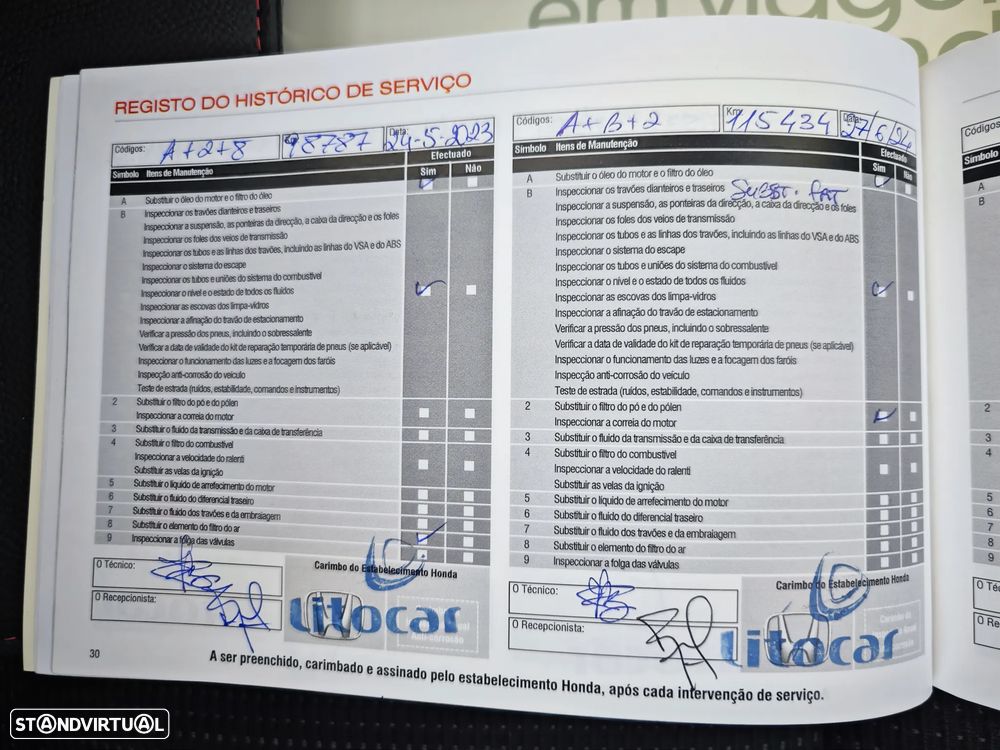 em viagem
REGISTO DO HISTÓRICO DE SERVIÇO
Códigos: A+2+8 98787 Data: 24-5-2023
Efectuado
Símbolo Itens de Manutenção Sim Não
A Substituir o óleo do motor e o filtro do óleo
B Inspeccionar os travões dianteiros e traseiros
Inspeccionar a suspensão, as ponteiras da direcção, a caixa da direcção e os foles
Inspeccionar os foles dos veios de transmissão
Inspeccionar os tubos e as linhas dos travões, incluindo as linhas do VSA e do ABS
Inspeccionar o sistema do escape
Inspeccionar os tubos e uniões do sistema do combustível
Inspeccionar o nível e o estado de todos os fluidos
Inspeccionar as escovas dos limpa-vidros
Inspeccionar a afinação do travão de estacionamento
Verificar a pressão dos pneus, incluindo o sobressalente
Verificar a data de validade do kit de reparação temporária de pneus (se aplicável)
Inspeccionar o funcionamento das luzes e a focagem dos faróis
Inspecção anti-corrosão do veículo
Teste de estrada (ruídos, estabilidade, comandos e instrumentos)
2 Substituir o filtro do pó e do pólen
Inspeccionar a correia do motor
3 Substituir o fluido da transmissão e da caixa de transferência
4 Substituir o filtro do combustível
Inspeccionar a velocidade do ralenti
Substituir as velas da ignição
5 Substituir o líquido de arrefecimento do motor
6 Substituir o fluido do diferencial traseiro
7 Substituir o fluido dos travões e da embraiagem
8 Substituir o elemento do filtro do ar
9 Inspeccionar a folga das válvulas
O Técnico:
Carimbo do Estabelecimento Honda
O Recepcionista:
Litocar
Anti-corrosão
Códigos: A+B+2 Km 115434 Data: 27/6/24
Efectuado
Símbolo Itens de Manutenção Sim Não
A Substituir o óleo do motor e o filtro do óleo
B Inspeccionar os travões dianteiros e traseiros Subst. PAT
Inspeccionar a suspensão, as ponteiras da direcção, a caixa da direcção e os foles
Inspeccionar os foles dos veios de transmissão
Inspeccionar os tubos e as linhas dos travões, incluindo as linhas do VSA e do ABS
Inspeccionar o sistema do escape
Inspeccionar os tubos e uniões do sistema do combustível
Inspeccionar o nível e o estado de todos os fluidos
Inspeccionar as escovas dos limpa-vidros
Inspeccionar a afinação do travão de estacionamento
Verificar a pressão dos pneus, incluindo o sobressalente
Verificar a data de validade do kit de reparação temporária de pneus (se aplicável)
Inspeccionar o funcionamento das luzes e a focagem dos faróis
Inspecção anti-corrosão do veículo
Teste de estrada (ruídos, estabilidade, comandos e instrumentos)
2 Substituir o filtro do pó e do pólen
Inspeccionar a correia do motor
3 Substituir o fluido da transmissão e da caixa de transferência
4 Substituir o filtro do combustível
Inspeccionar a velocidade do ralenti
Substituir as velas da ignição
5 Substituir o líquido de arrefecimento do motor
6 Substituir o fluido do diferencial traseiro
7 Substituir o fluido dos travões e da embraiagem
8 Substituir o elemento do filtro do ar
9 Inspeccionar a folga das válvulas
O Técnico:
Carimbo do Estabelecimento Honda
O Recepcionista:
Litocar
30
A ser preenchido, carimbado e assinado pelo estabelecimento Honda, após cada intervenção de serviço.
Códigos:
Símbolo
A
B
2
3
4
5
6
7
8
9
STANDVIRTUAL